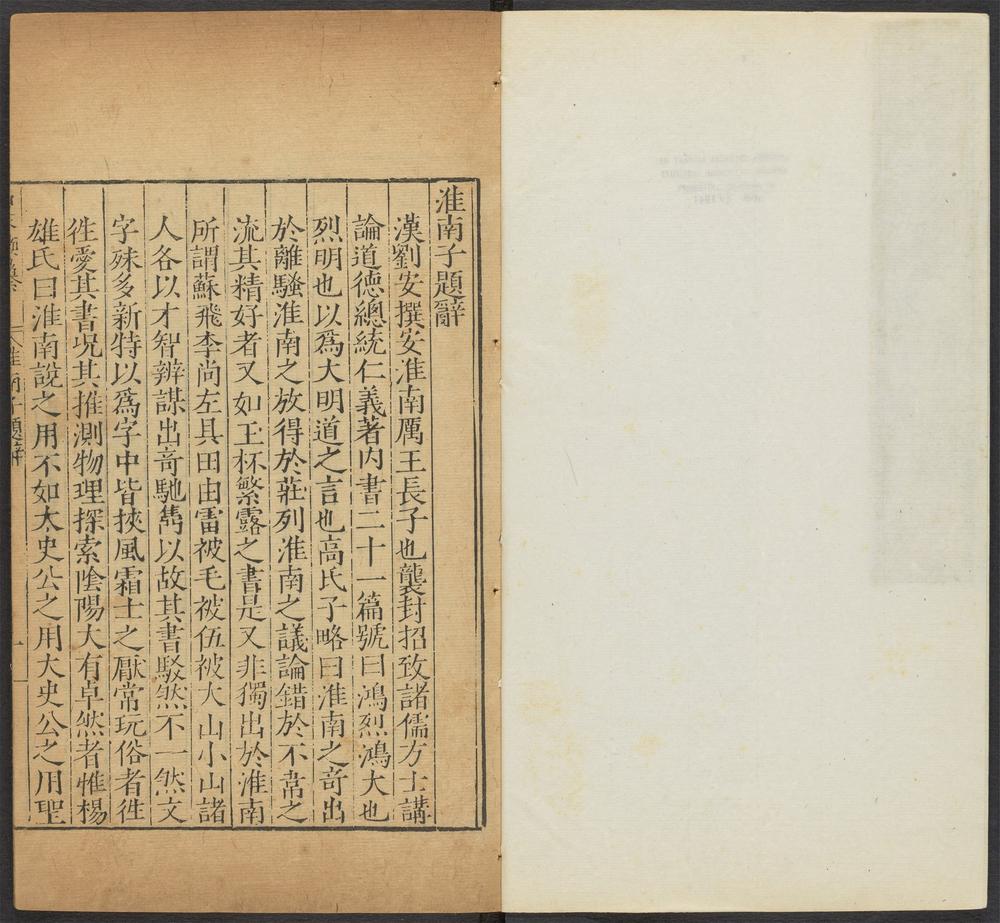 淮南子題辭
漢劉安撰安淮南厲王長子也襲封招致諸儒方士講
論道德總統仁義著內書二十一篇號曰鴻烈鴻大也
烈明也以爲大明道之言也高氏子略曰淮南之竒出
於離騷淮南之放得於莊列淮南之議論錯於不常之
流其精好者又如玉杯繁露之書是又非獨出於淮南
所謂蘇飛李尚左具田由雷被毛被伍被大山小山諸
人各以才智辨謀出竒馳雋以故其書駁然不一然文
字殊多新特以爲字中皆挾風霜士之厭常玩俗者徃
徃愛其書况其推測物理探索陰陽大有卓然者惟楊
雄氏曰淮南說之用不如太史公之用太史公之用聖
淮南子題辭
一